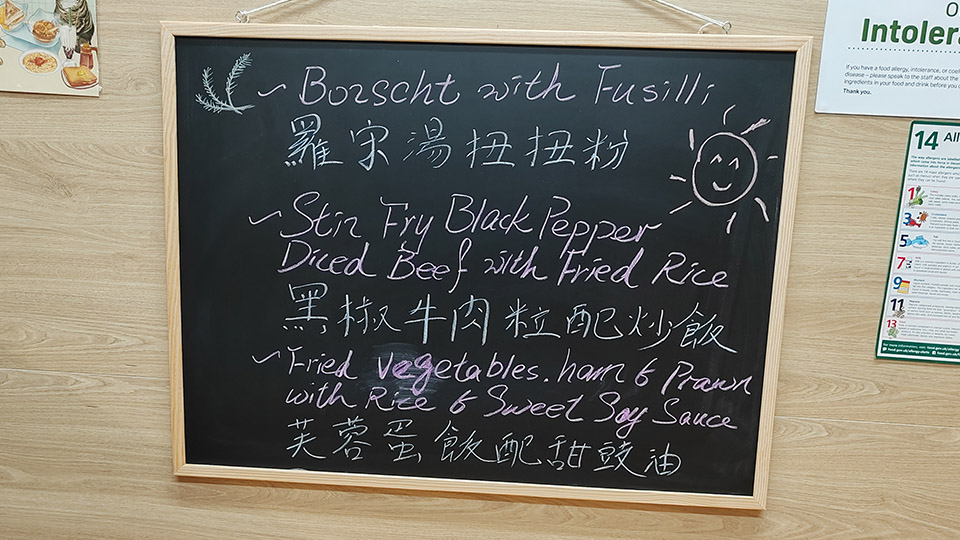 Borscht with Fusilli
羅宋湯扭扭粉
Stir Fry Black Pepper
Diced Beef with Fried Rice
黑椒牛肉粒配炒飯
Fried vegetables. ham & Prawn
with Rice & Sweet Soy Sauce
芙蓉蛋飯配甜豉油
Intolera
If you have a food allergy, intolerance, or coel
disease – please speak to the staff about the
ingredients in your food and drink before you o
Thank you.
14 All
1
3
5
7
9
11
13